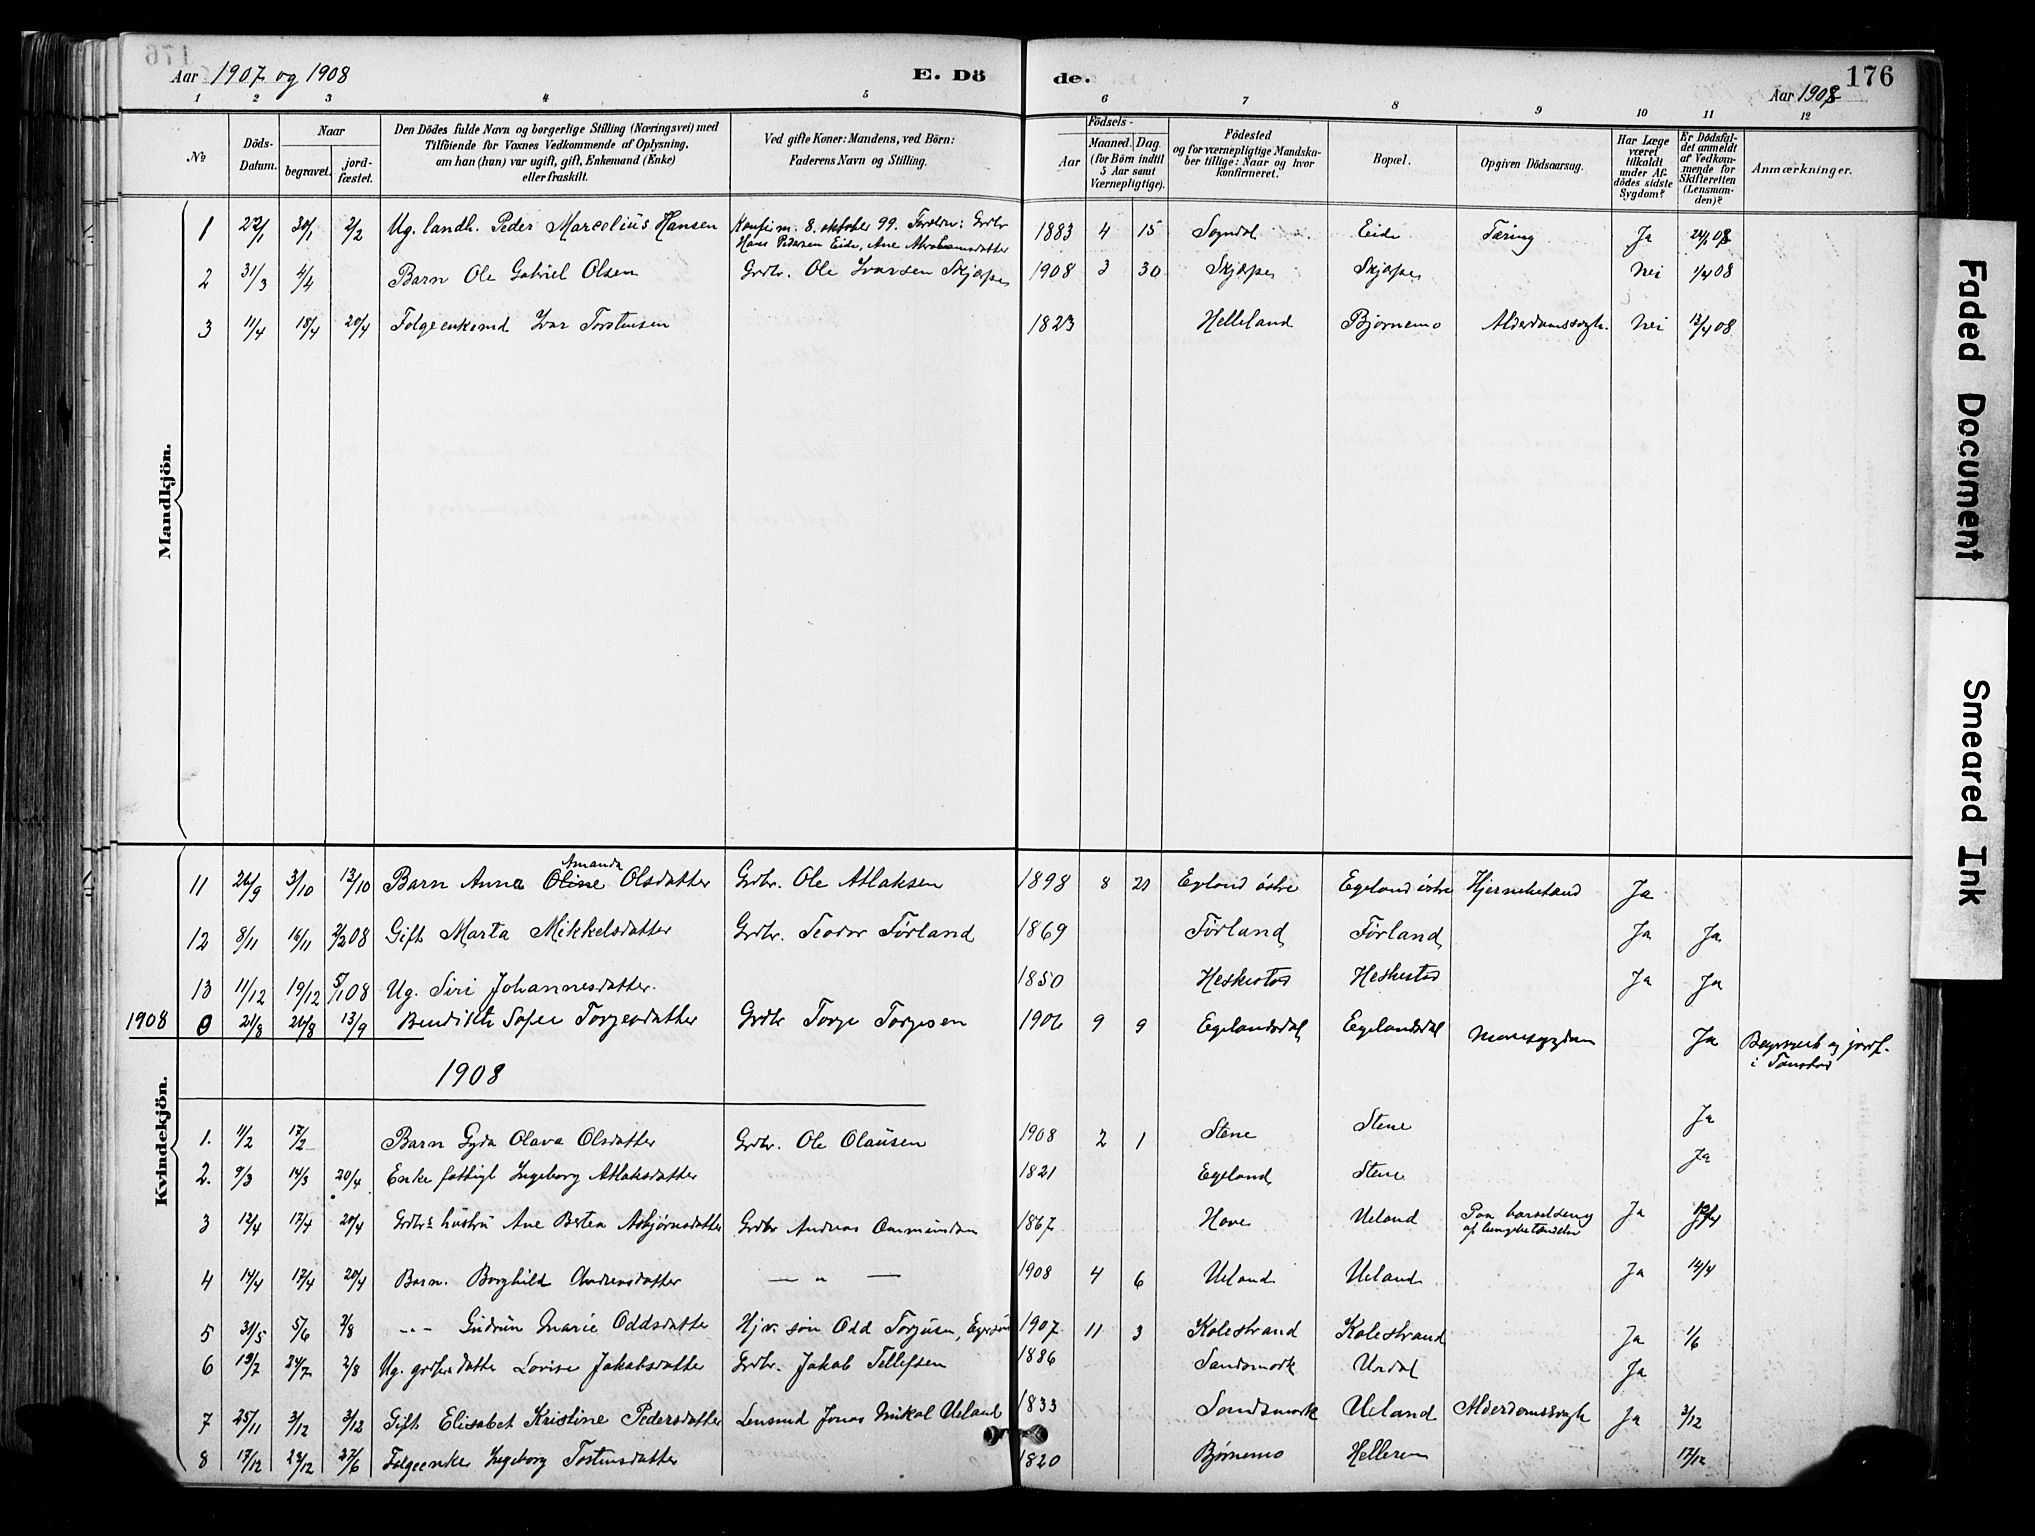 Aar 1907 og 1908
E. Dö
de.
176
Aar 1908
1 2 3 4 5 6 7 8 9 10 11 12
№
Döds-Datum.
Naar
begravet.
jord-fæstet.
Den Dödes fulde Navn og borgerlige Stilling (Næringsvei) med
Tilföiende for Voxnes Vedkommende af Oplysning,
om han (hun) var ugift, gift, Enkemand (Enke)
eller fraskilt.
Ved gifte Koner: Mandens, ved Börn:
Faderens Navn og Stilling.
Födsels-
Aar
Maaned. Dag.
(for Börn indtil
5 Aar samt
Værnepligtige).
Födested
og for værnepligtige Mandska-
ber tillige: Naar og hvor
konfirmeret.
Bopæl.
Opgiven Dödsaarsag.
Har Læge
været
tilkaldt
under Af-
dödes sidste
Sygdom?
Er Dödsfal-
det anmeldt
af Vedkom-
mende for
Skifteretten
(Lensman-
den)?
Anmærkninger.
Mandkjön.
1 22/1 30/1 2/2 Ug. landh. Peder Marcelius Hansen Konfirm. 8. oktober 99. Foreldre: Grdbr. Hans Pedersen Eide, Ane Abrahamsdatter 1883 4 15 Sogndal Eide Tæring Ja
2 31/3 4/4 Barn Ole Gabriel Olsen Grdbr. Ole Ivarsen Skjæpe 1908 3 30 Skjæpe Skjæpe Nei 1/4 08
3 11/4 18/4 20/4 Folgeenkemd Ivar Torstensen 1823 Helleland Bjørnemo Alderdomssvagh. Nei 13/4 08
Kvindekjön.
11 26/9 3/10 13/10 Barn Anna Oline Amanda Olsdatter Grdbr. Ole Atlaksen 1898 8 Egeland østre Egeland østre Hjernebetænd Ja
12 8/11 16/11 2/2 08 Gift Marta Mikkelsdatter Grdbr. Teodor Førland 1869 Førland Førland Ja Ja
13 11/12 19/12 5/1 08 Ug. Siri Johannesdatter. 1850 Heskestad Heskestad Ja Ja
1908 0 21/8 26/8 13/9 Bendikte Sofie Torjersdatter Grdbr Torje Torjesen 1906 9 9 Egelandsdal Egelandsdal Mavesygdom Ja Begravet og jordf. i Tonstad
1908
1. 11/2 17/2 Barn Gyda Olava Olsdatter Grdbr. Ole Olausen 1908 2 1 Stene Stene Ja
2. 9/3 14/3 20/4 Enke fattigl Ingeborg Atlaksdatter 1821 Egeland Stene Ja
3 12/4 17/4 20/4 Grdbrs hustru Ane Bertea Asbjørnsdatter Grdbr Andreas Ommundsen 1867 Hove Ueland Paa barselseng af lungebetændelse Ja
4 14/4 17/4 20/4 Barn. Borghild Andreasdatter — „ — 1908 4 6 Ueland Ueland Ja 14/4
5 31/5 5/6 2/8 -„- Gudrun Marie Oddsdatter Hjv. søn Odd Torjusen, 1907 11 3 Kolestrand Kolestrand Ja 1/6
6 19/7 24/7 2/8 Ug. grdbrs datter Lovise Jakobsdatter Grdbr. Jakob Tellefsen 1886 Sandsmork Urdal Ja
7 25/11 3/12 3/12 Gift Elisabet Kristine Pedersdatter Lensmd Jonas Mikal Ueland 1833 Sandsmork Ueland Alderdomssvagh Ja 3/12
8 17/12 22/12 27/6 Folgeenke Ingeborg Tostensdatter 1820 Bjørnemo Helleren 17/12
Faded Document
Smeared Ink